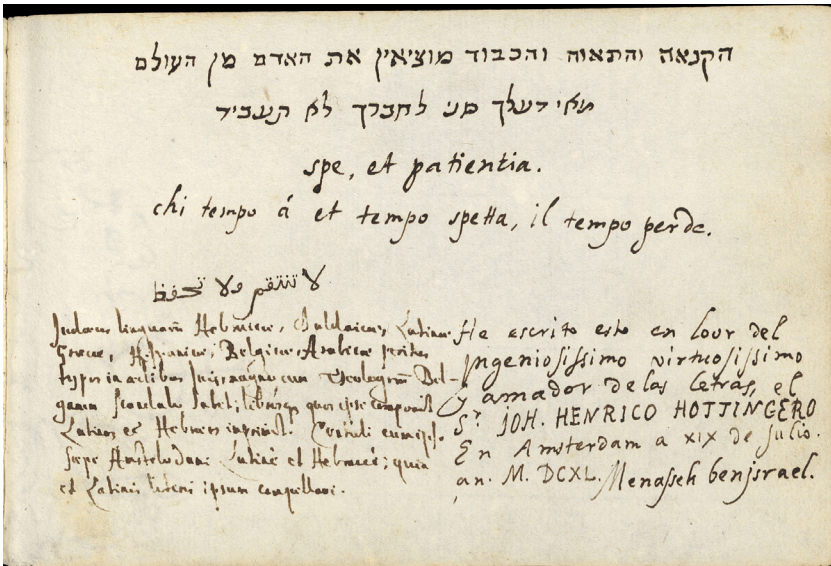 הקנאה והתאוה והכבוד מוציאין את האדם מן העולם
מאי דעלך סני לחברך לא תעביד
spe, et patientia.
chi tempo á et tempo spetta, il tempo perde.
لا تنتقم ولا تحفظ
Judæus linguarũ Hebraicæ, Chaldaicæ, Latinæ
Græcæ, Hispanicæ, Belgicæ Arabicæ peritus
typos in ædibus suis magno cum Theologorũ Bel-
garum scandalo habet; librosq quos ipse composuit
Latinos et Hebræos imprimit. Contuli cum ipso
sæpe Amstelodami Latinè et Hebraicè; quin
et Latinis literis ipsum compellavi.
He escrito esto en loor del
Ingeniosissimo virtuosissimo
y amador de las letras, el
Sr. JOH. HENRICO HOTTINGERO
En Amsterdam a XIX de Julio.
an. M. DCXL. Menasseh ben Jsrael.